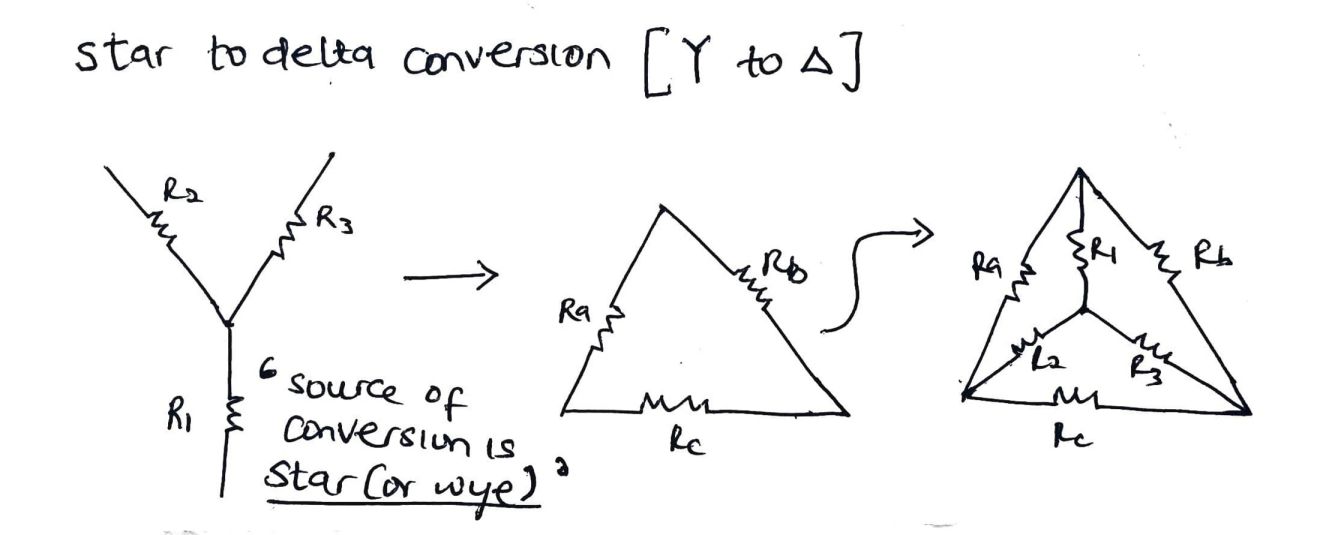 star to delta conversion [Y to Δ]
R2
R3
R1
“source of
conversion is
star (or wye)”
Ra
Rb
Rc
Ra
R1
Rb
R2
R3
Rc